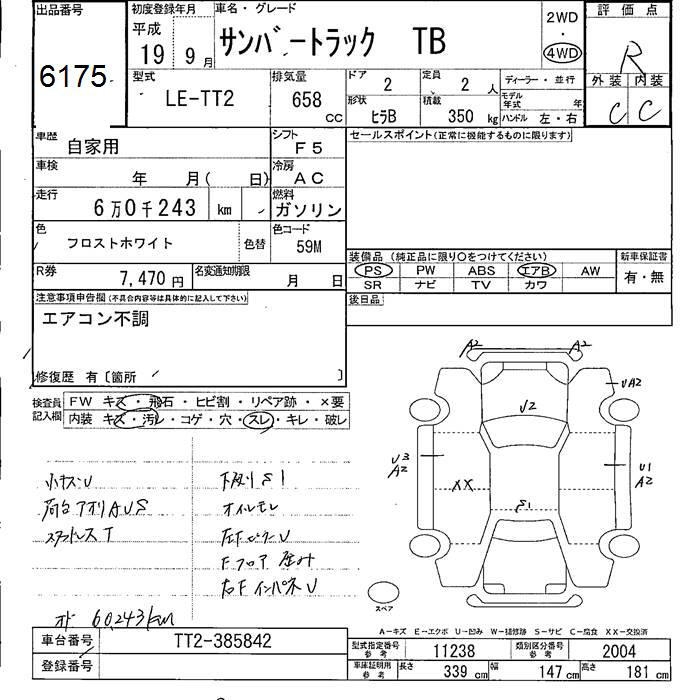 出品番号
6175
初度登録年月
平成
19 9 月
車名・グレード
サンバートラック TB
2WD
・
4WD
評価点
R
外装 内装
C C
型式
LE-TT2
排気量
658 CC
ドア
2
定員
2 人
形状
ヒラB
積載
350 kg
ディーラー・並行
モデル年式 年
ハンドル 左・右
車歴
自家用
シフト
F5
車検
年 月( 日)
冷房
AC
走行
6万0千243 km
燃料
ガソリン
色
フロストホワイト
色替
色コード
59M
R券
7,470 円
名変通知期限
月 日
セールスポイント(正常に機能するものに限ります)
装備品(純正品に限り○をつけてください)
PS PW ABS エアB AW
SR ナビ TV カワ
新車保証書
有・無
後日品
注意事項申告欄(不具合内容等は具体的に記入して下さい)
エアコン不調
修復歴 有〔箇所 〕
検査員記入欄
FW キズ・飛石・ヒビ割・リペア跡・×要
内装 キズ・汚レ・コゲ・穴・スレ・キレ・破レ
小キズU
荷台アオリAUS
スタッドレスT
下廻りS1
オイルモレ
Fフロア歪み
右FインパネU
オド 60,243km
A2 A2
UA2
U2
U3
A2
XX
S1
U1
A2
スペア
A-キズ E-エクボ U-凹み W-補修跡 S-サビ C-腐食 XX-交換済
車台番号
TT2-385842
登録番号
型式指定番号参考
11238
類別区分番号参考
2004
車庫証明用参考
長さ 339 cm 幅 147 cm 高さ 181 cm